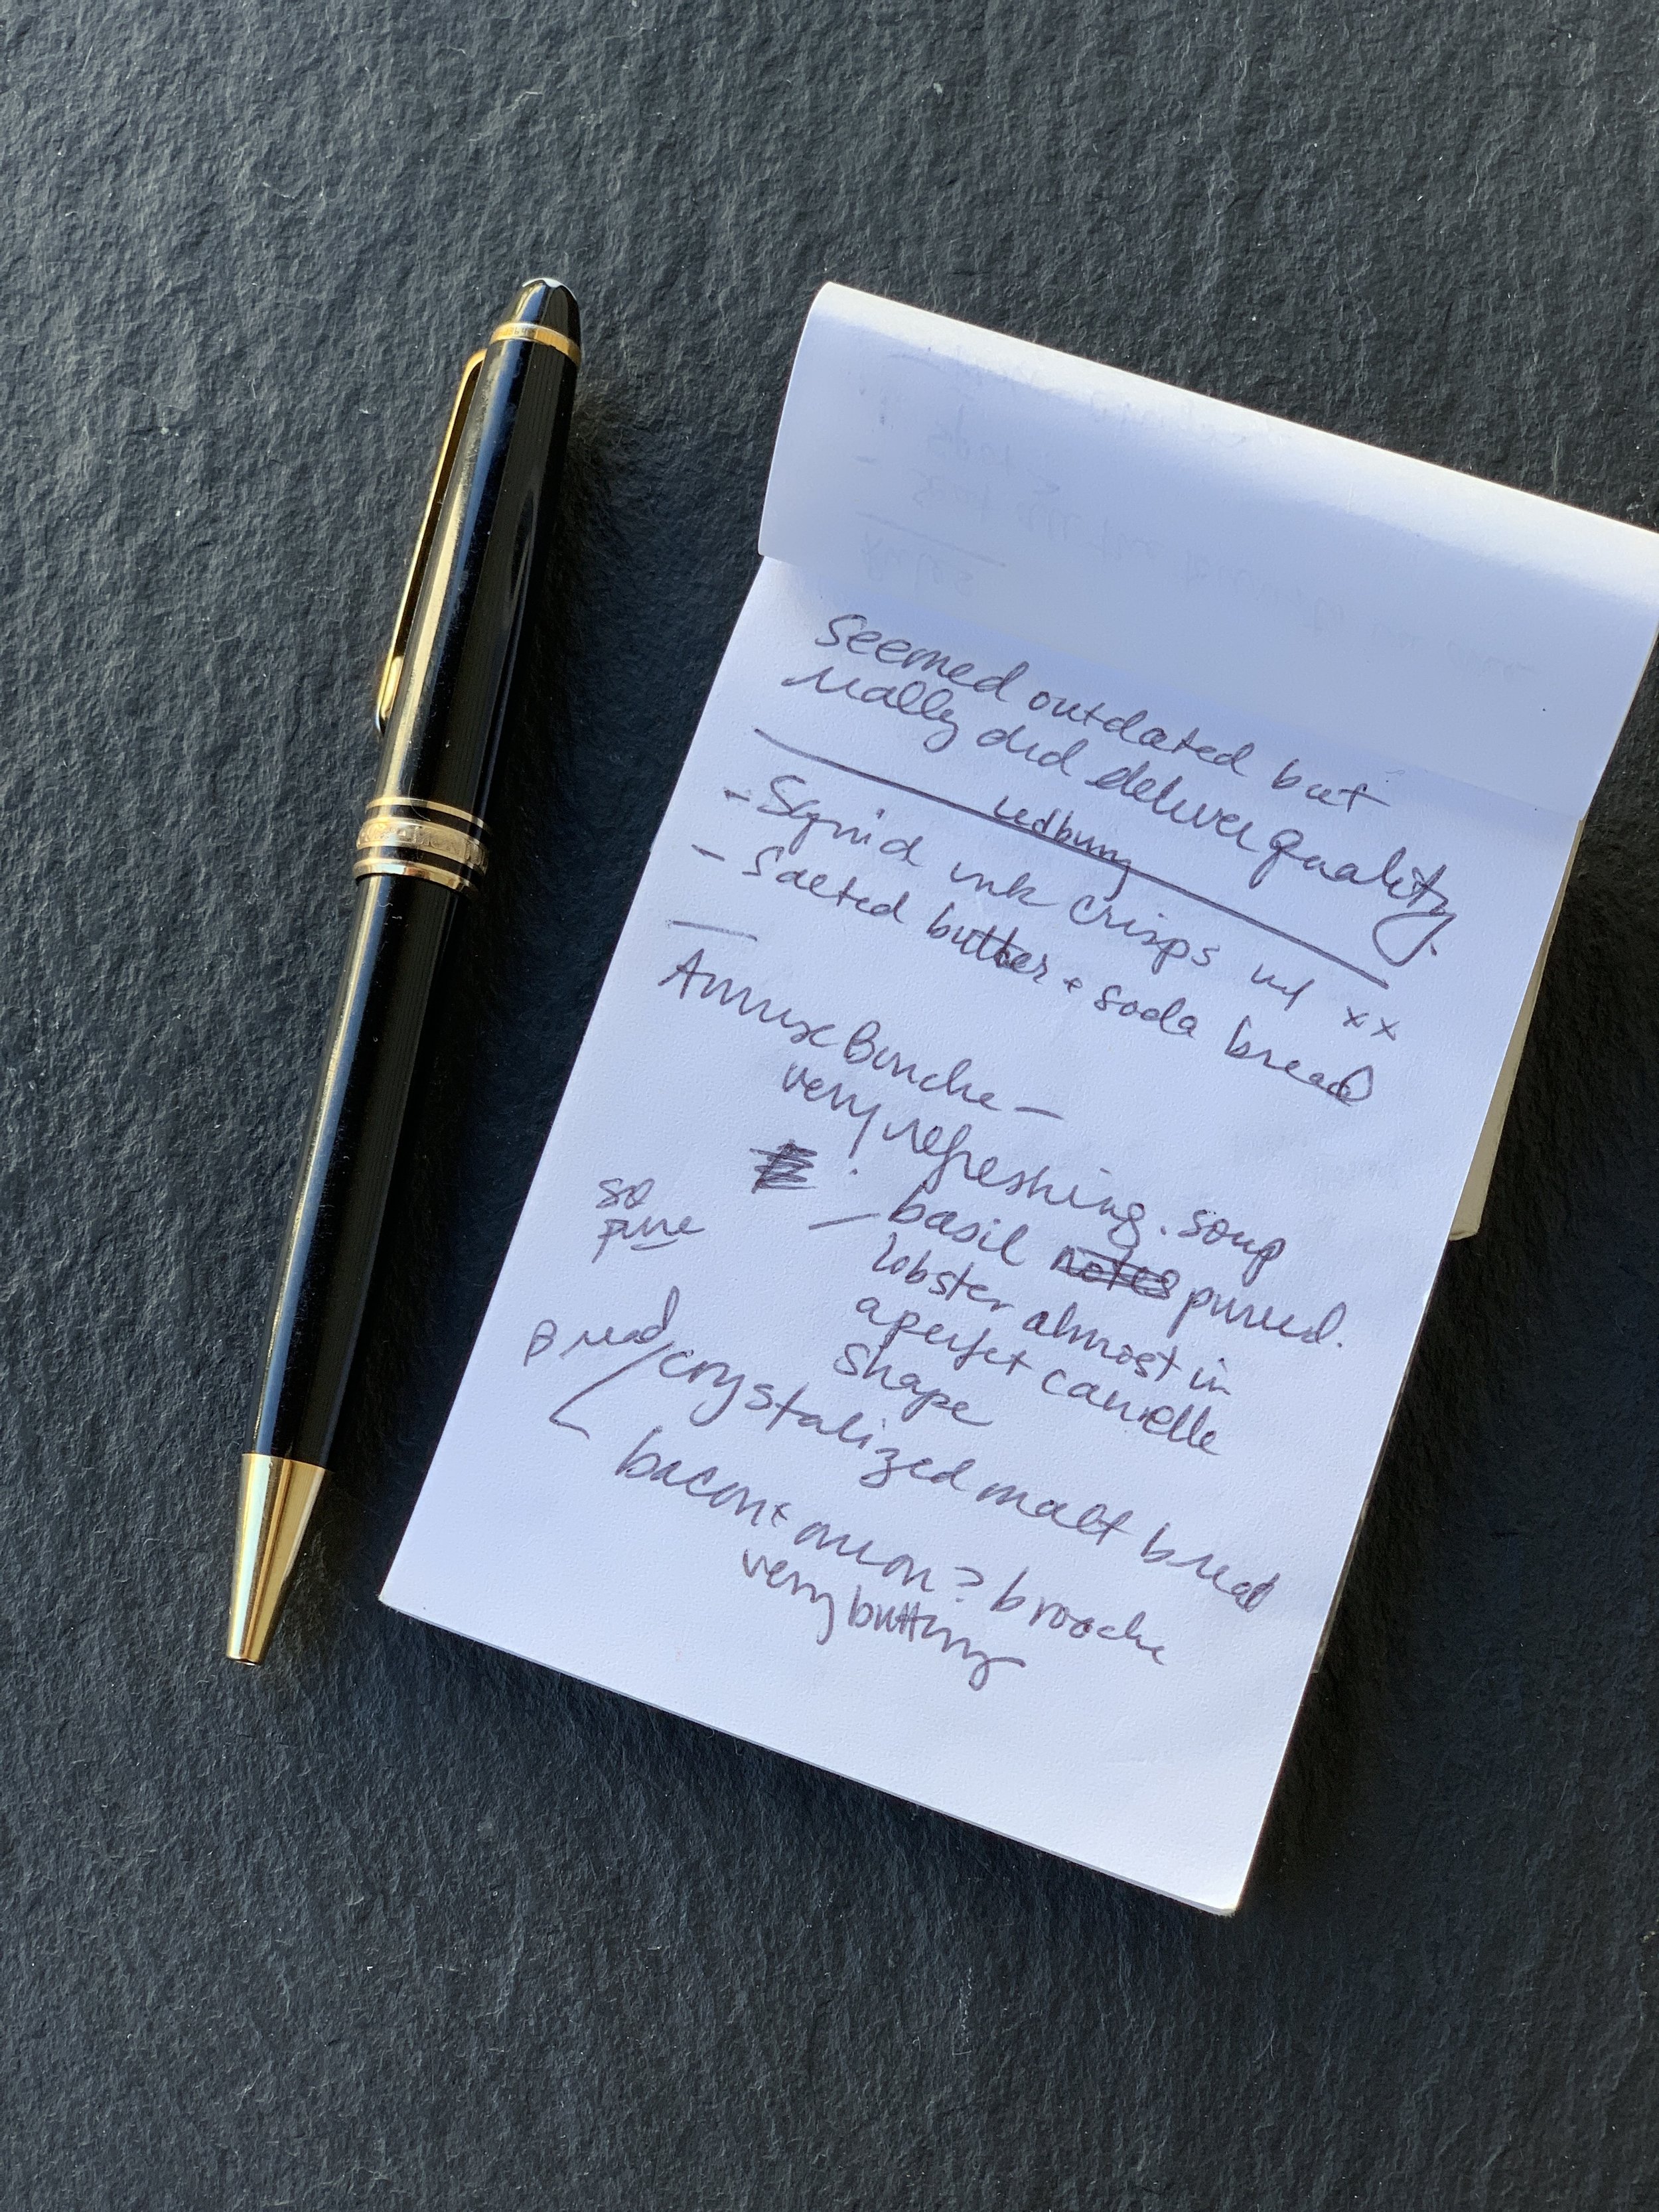 seemed outdated but
really did deliver quality.
Ledbury
- Squid ink crisps w/ xx
- Salted butter + soda bread
Amuse Bouche —
very refreshing. soup
— basil notes pureed.
so
pure
lobster almost in
a perfect canelle
shape
Bread/crystalized malt bread
bacon + onion? brioche
very buttery